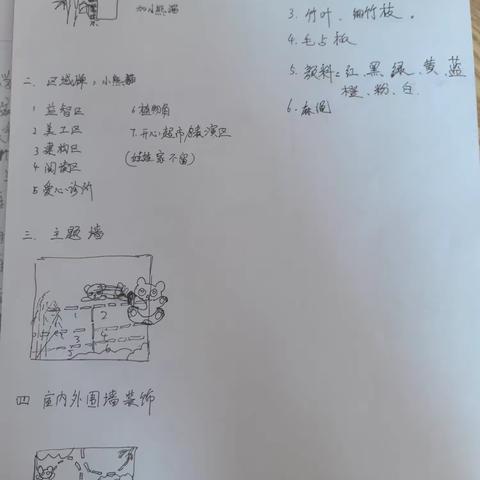 加小熊猫
3. 竹叶、细竹枝。
4. 毛占板
5. 颜料:红、黑、绿、黄、蓝
橙、粉、白.
6. 麻绳
二. 区域牌:小熊猫
1 益智区
2 美工区
3 建构区
4 阅读区
5 爱心诊所
6 植物角
7. 开心超市/表演区
(娃娃家不留)
三. 主题墙
1 2
3 4
5 6
四 室内外围墙装饰